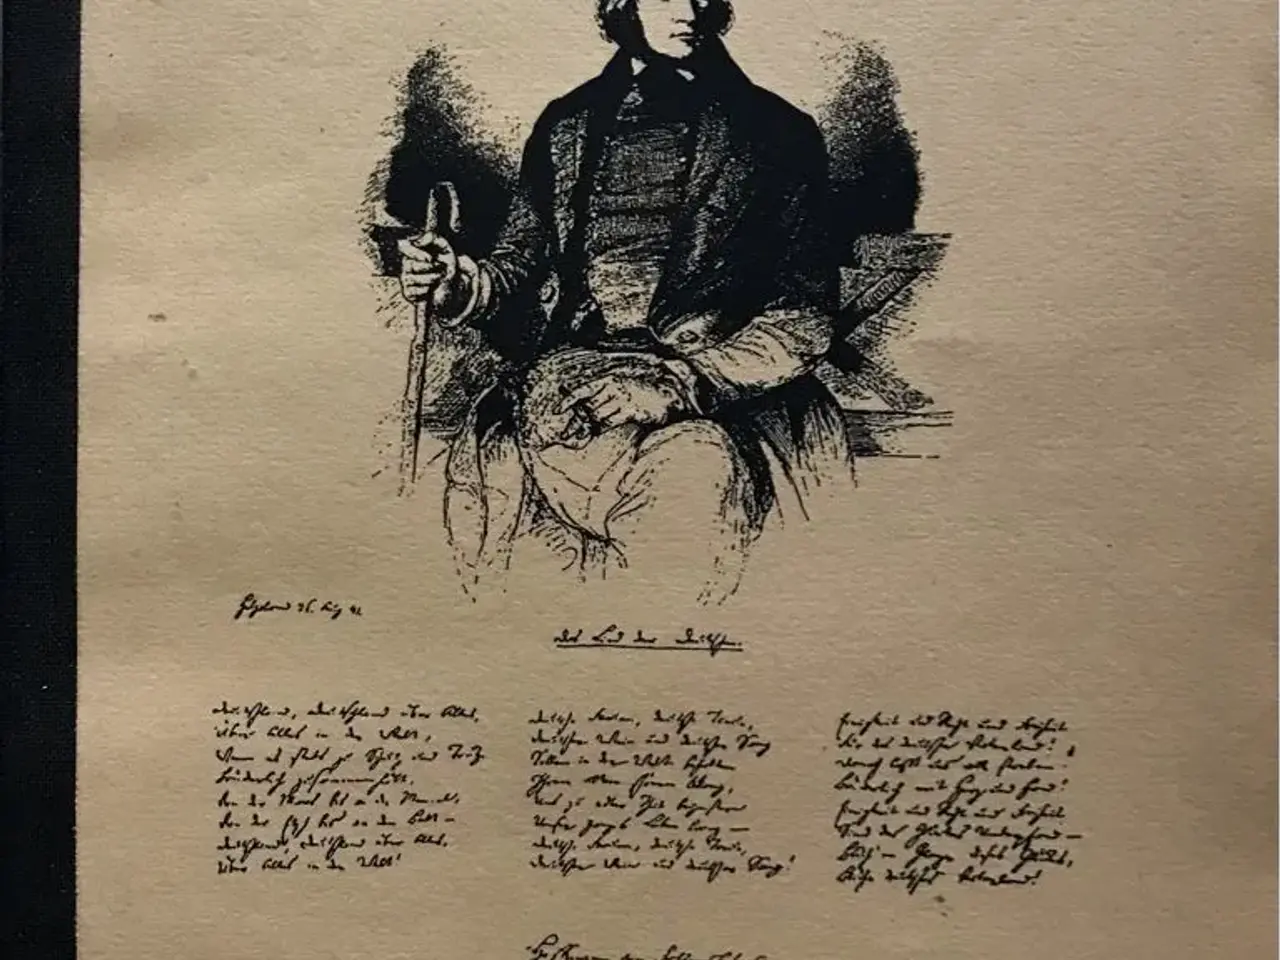 Helgoland 26. Aug. 41.
Das Lied der Deutschen.
Deutschland, Deutschland über Alles,
Über Alles in der Welt,
Wenn es stets zu Schutz und Trutze
Brüderlich zusammenhält,
Von der Maas bis an die Memel,
Von der Etsch bis an den Belt –
Deutschland, Deutschland über Alles,
Über Alles in der Welt!
Deutsche Frauen, deutsche Treue,
Deutscher Wein und deutscher Sang
Sollen in der Welt behalten
Ihren alten schönen Klang,
Uns zu edler That begeistern
Unser ganzes Leben lang –
Deutsche Frauen, deutsche Treue,
Deutscher Wein und deutscher Sang!
Einigkeit und Recht und Freiheit
Für das deutsche Vaterland!
Danach laßt uns alle streben
Brüderlich mit Herz und Hand!
Einigkeit und Recht und Freiheit
Sind des Glückes Unterpfand –
Blüh' im Glanze dieses Glückes,
Blühe deutsches Vaterland!
Hoffmann von Fallersleben